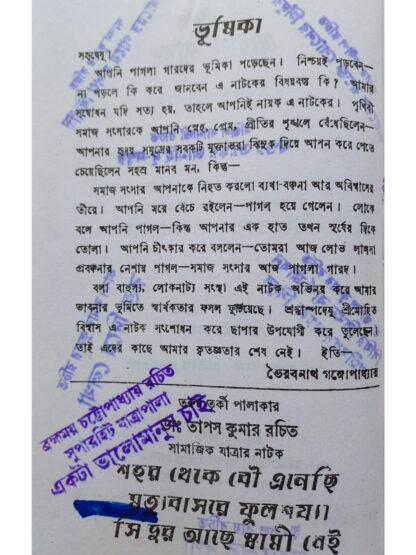 ভূমিকা
সহৃদয়েষু।
আপনি পাগলা গারদের ভূমিকা পড়েছেন। নিশ্চয়ই পড়বেন—
না পড়লে কি করে জানবেন এ নাটকের বিষয়বস্তু কি? আমার
সম্বোধন যদি সত্য হয়, তাহলে আপনিই নায়ক এ নাটকের। পৃথিবী
সমাজ সংসারকে আপনি স্নেহ, প্রেম, প্রীতির শৃঙ্খলে বেঁধেছিলেন—
আপনার হৃদয় সমুদ্রের সবকটি মুক্তাভরা ঝিনুক দিয়ে আপন করে পেতে
চেয়েছিলেন সহস্র মানব মন, কিন্তু—
সমাজ সংসার আপনাকে নিহত করলো ব্যথা-বঞ্চনা আর অবিশ্বাসের
তীরে। আপনি মরে বেঁচে রইলেন—পাগল হয়ে গেলেন। লোকে
বলে আপনি পাগল—কিন্তু আপনার এক হাত তখন স্বর্গের দিকে
তোলা। আপনি চীৎকার করে বললেন—তোমরা আজ লোভ লালসা
প্রবঞ্চনার নেশায় পাগল—সমাজ সংসার আজ পাগলা গারদ।
বলা বাহুল্য, লোকনাট্য সংস্থা এই নাটক অভিনয় করে আমার
ভাবনার ভূমিতে স্বার্থকতার ফসল ফলিয়েছে। শ্রদ্ধাস্পদেষু শ্রীমোহিত
বিশ্বাস এ নাটক সংশোধন করে ছাপার উপযোগী করে তুলেছেন।
তাই এদের কাছে আমার কৃতজ্ঞতার শেষ নেই। ইতি—
ভৈরবনাথ গঙ্গোপাধ্যায়
পালাকার
ডাঃ তাপস কুমার রচিত
সামাজিক যাত্রার নাটক
শহর থেকে বৌ এনেছি
মৃত্যুবাসরে ফুলশয্যা
সিঁদুর আছে স্বামী নেই
ব্রহ্মময় চট্টোপাধ্যায় রচিত
সুপারহিট যাত্রাপালা
একটা ভালোমানুষ চাই